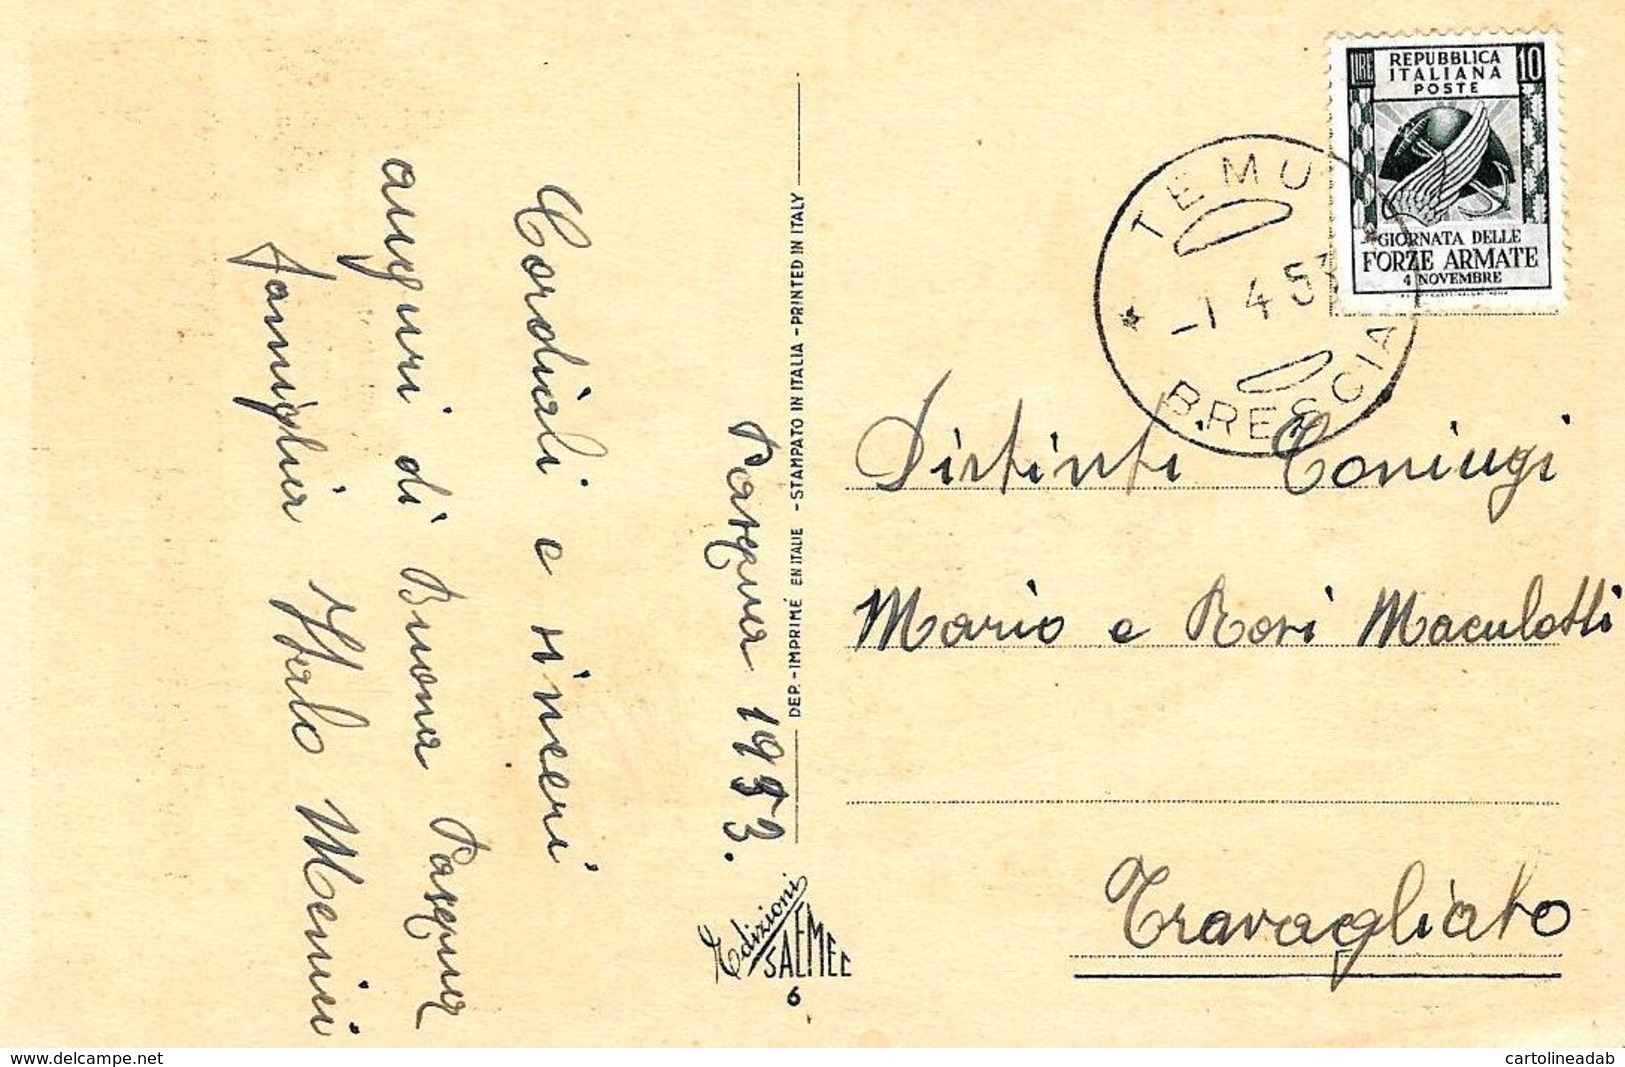 Pasqua 1953.
Cordiali e sinceri
auguri di Buona Pasqua
famiglia Italo Menici
DEP. - IMPRIMÉ EN ITALIE - STAMPATO IN ITALIA - PRINTED IN ITALY
Edizioni
SAEMEC
6
LIRE
REPUBBLICA
ITALIANA
POSTE
10
GIORNATA DELLE
FORZE ARMATE
4 NOVEMBRE
TEMU
-1 4 53
BRESCIA
Distinti Coniugi
Mario e Rori Maculotti
Travagliato
www.delcampe.net
cartolineadab